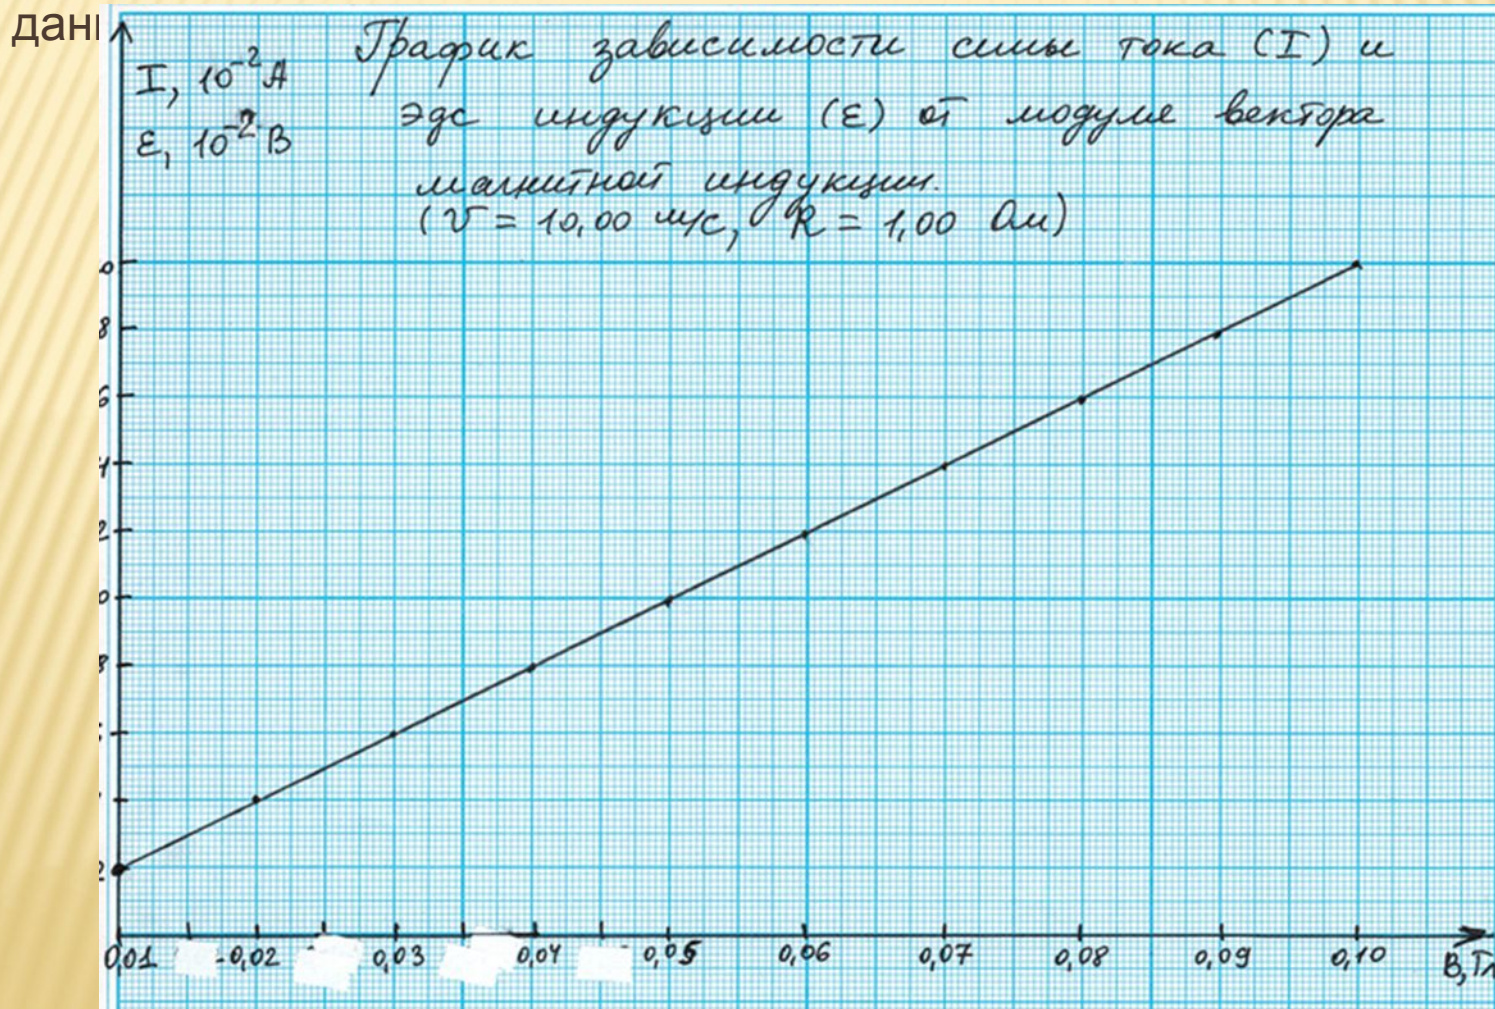 I, 10⁻² А
График зависимости силы тока (I) и
ε, 10⁻² В
эдс индукции (ε) от модуле вектора
магнитной индукции.
(v = 10,00 м/с, R = 1,00 Ом)
0
8
6
4
2
0
8
2
0,01 0,02 0,03 0,04 0,05 0,06 0,07 0,08 0,09 0,10 В, Тл